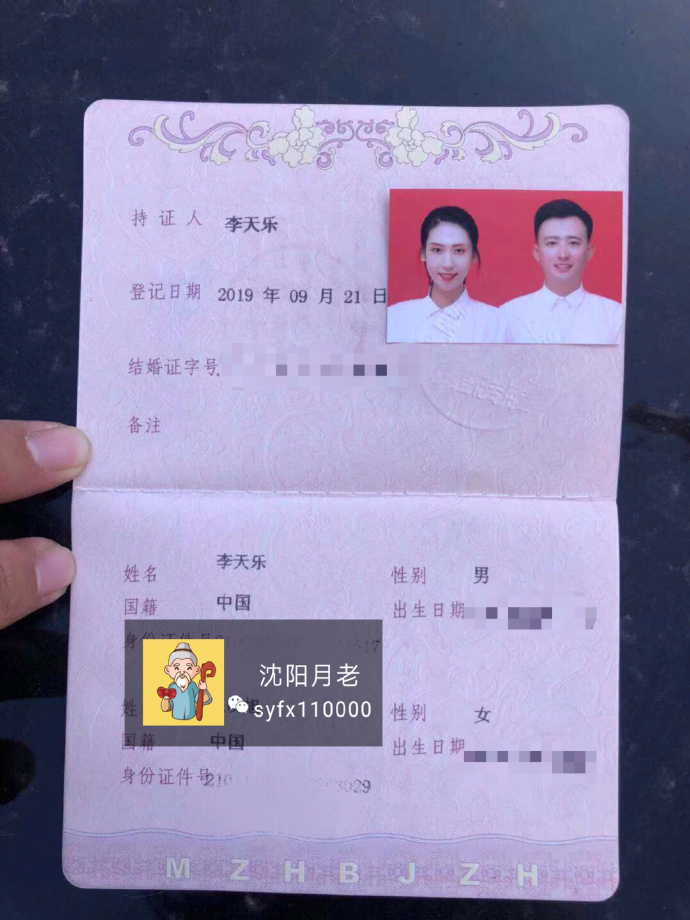 持证人 李天乐
登记日期 2019 年 09 月 21 日
结婚证字号
备注
姓名 李天乐 性别 男
国籍 中国 出生日期
身份证件号
沈阳月老
syfx110000
姓 性别 女
国籍 中国 出生日期
身份证件号
MZHBJZH